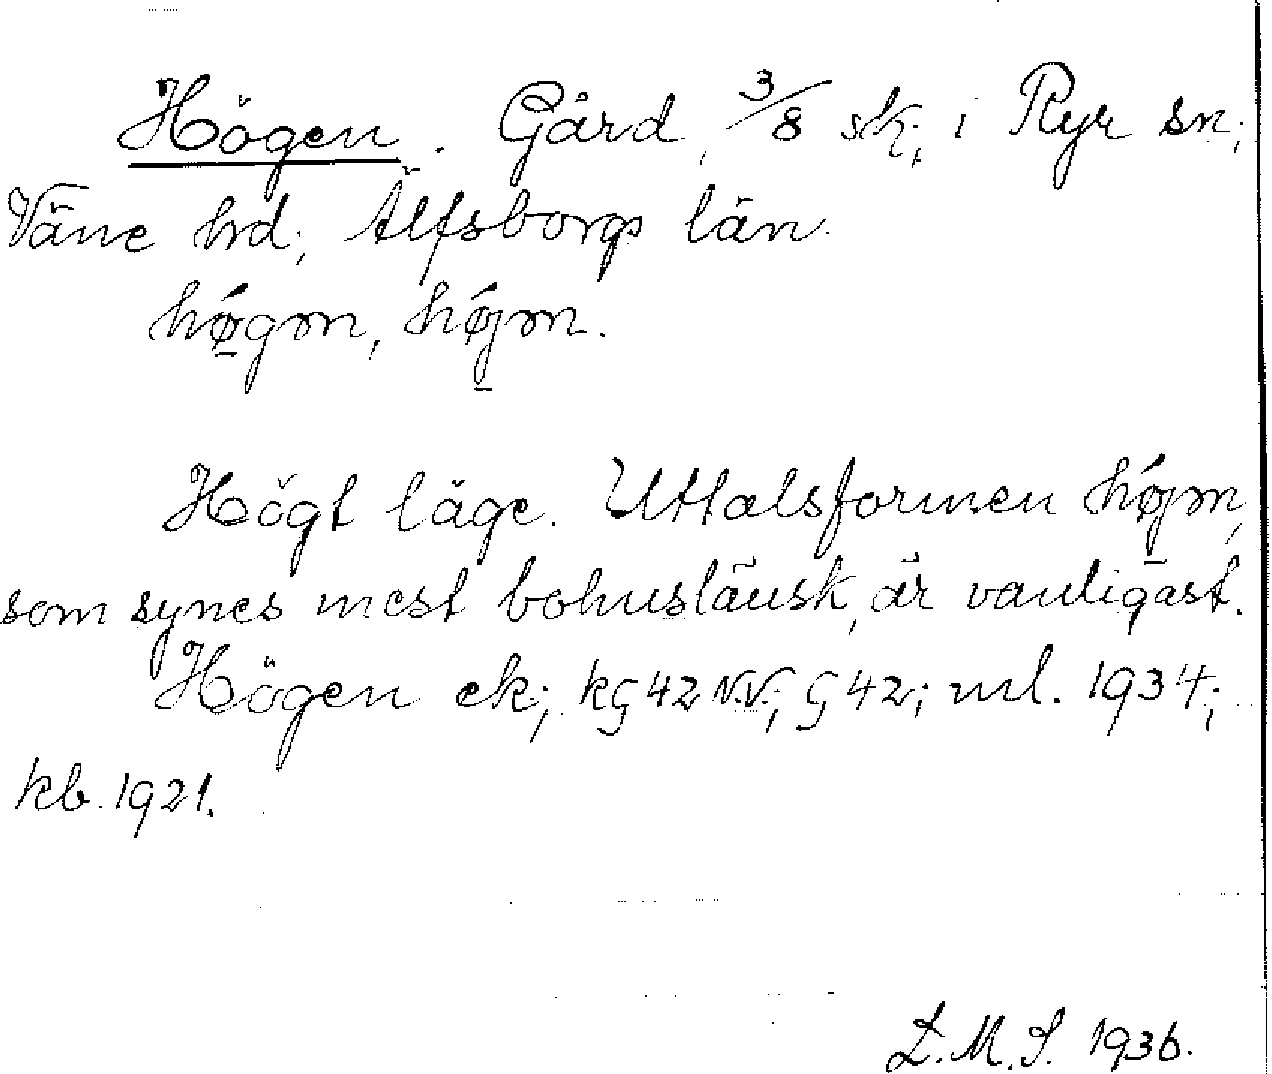 Högen. Gård, 3/8 sk, i Ryr sn,
Väne hd, Älfsborgs län.
hǿ̱gən, hǿ̱jən.
Högt läge. Uttalsformen hǿ̱jən,
som synes mest bohuslänsk, är vanligast.
Högen ek; kç 42 N.V; ç 42; ml. 1934;
kb. 1921.
L.M.S. 1936.